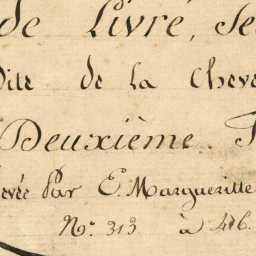 de Livré, Se
Dite de la Cheve
Deuxième
evée Par E. Margueritte
No. 313 à 416.